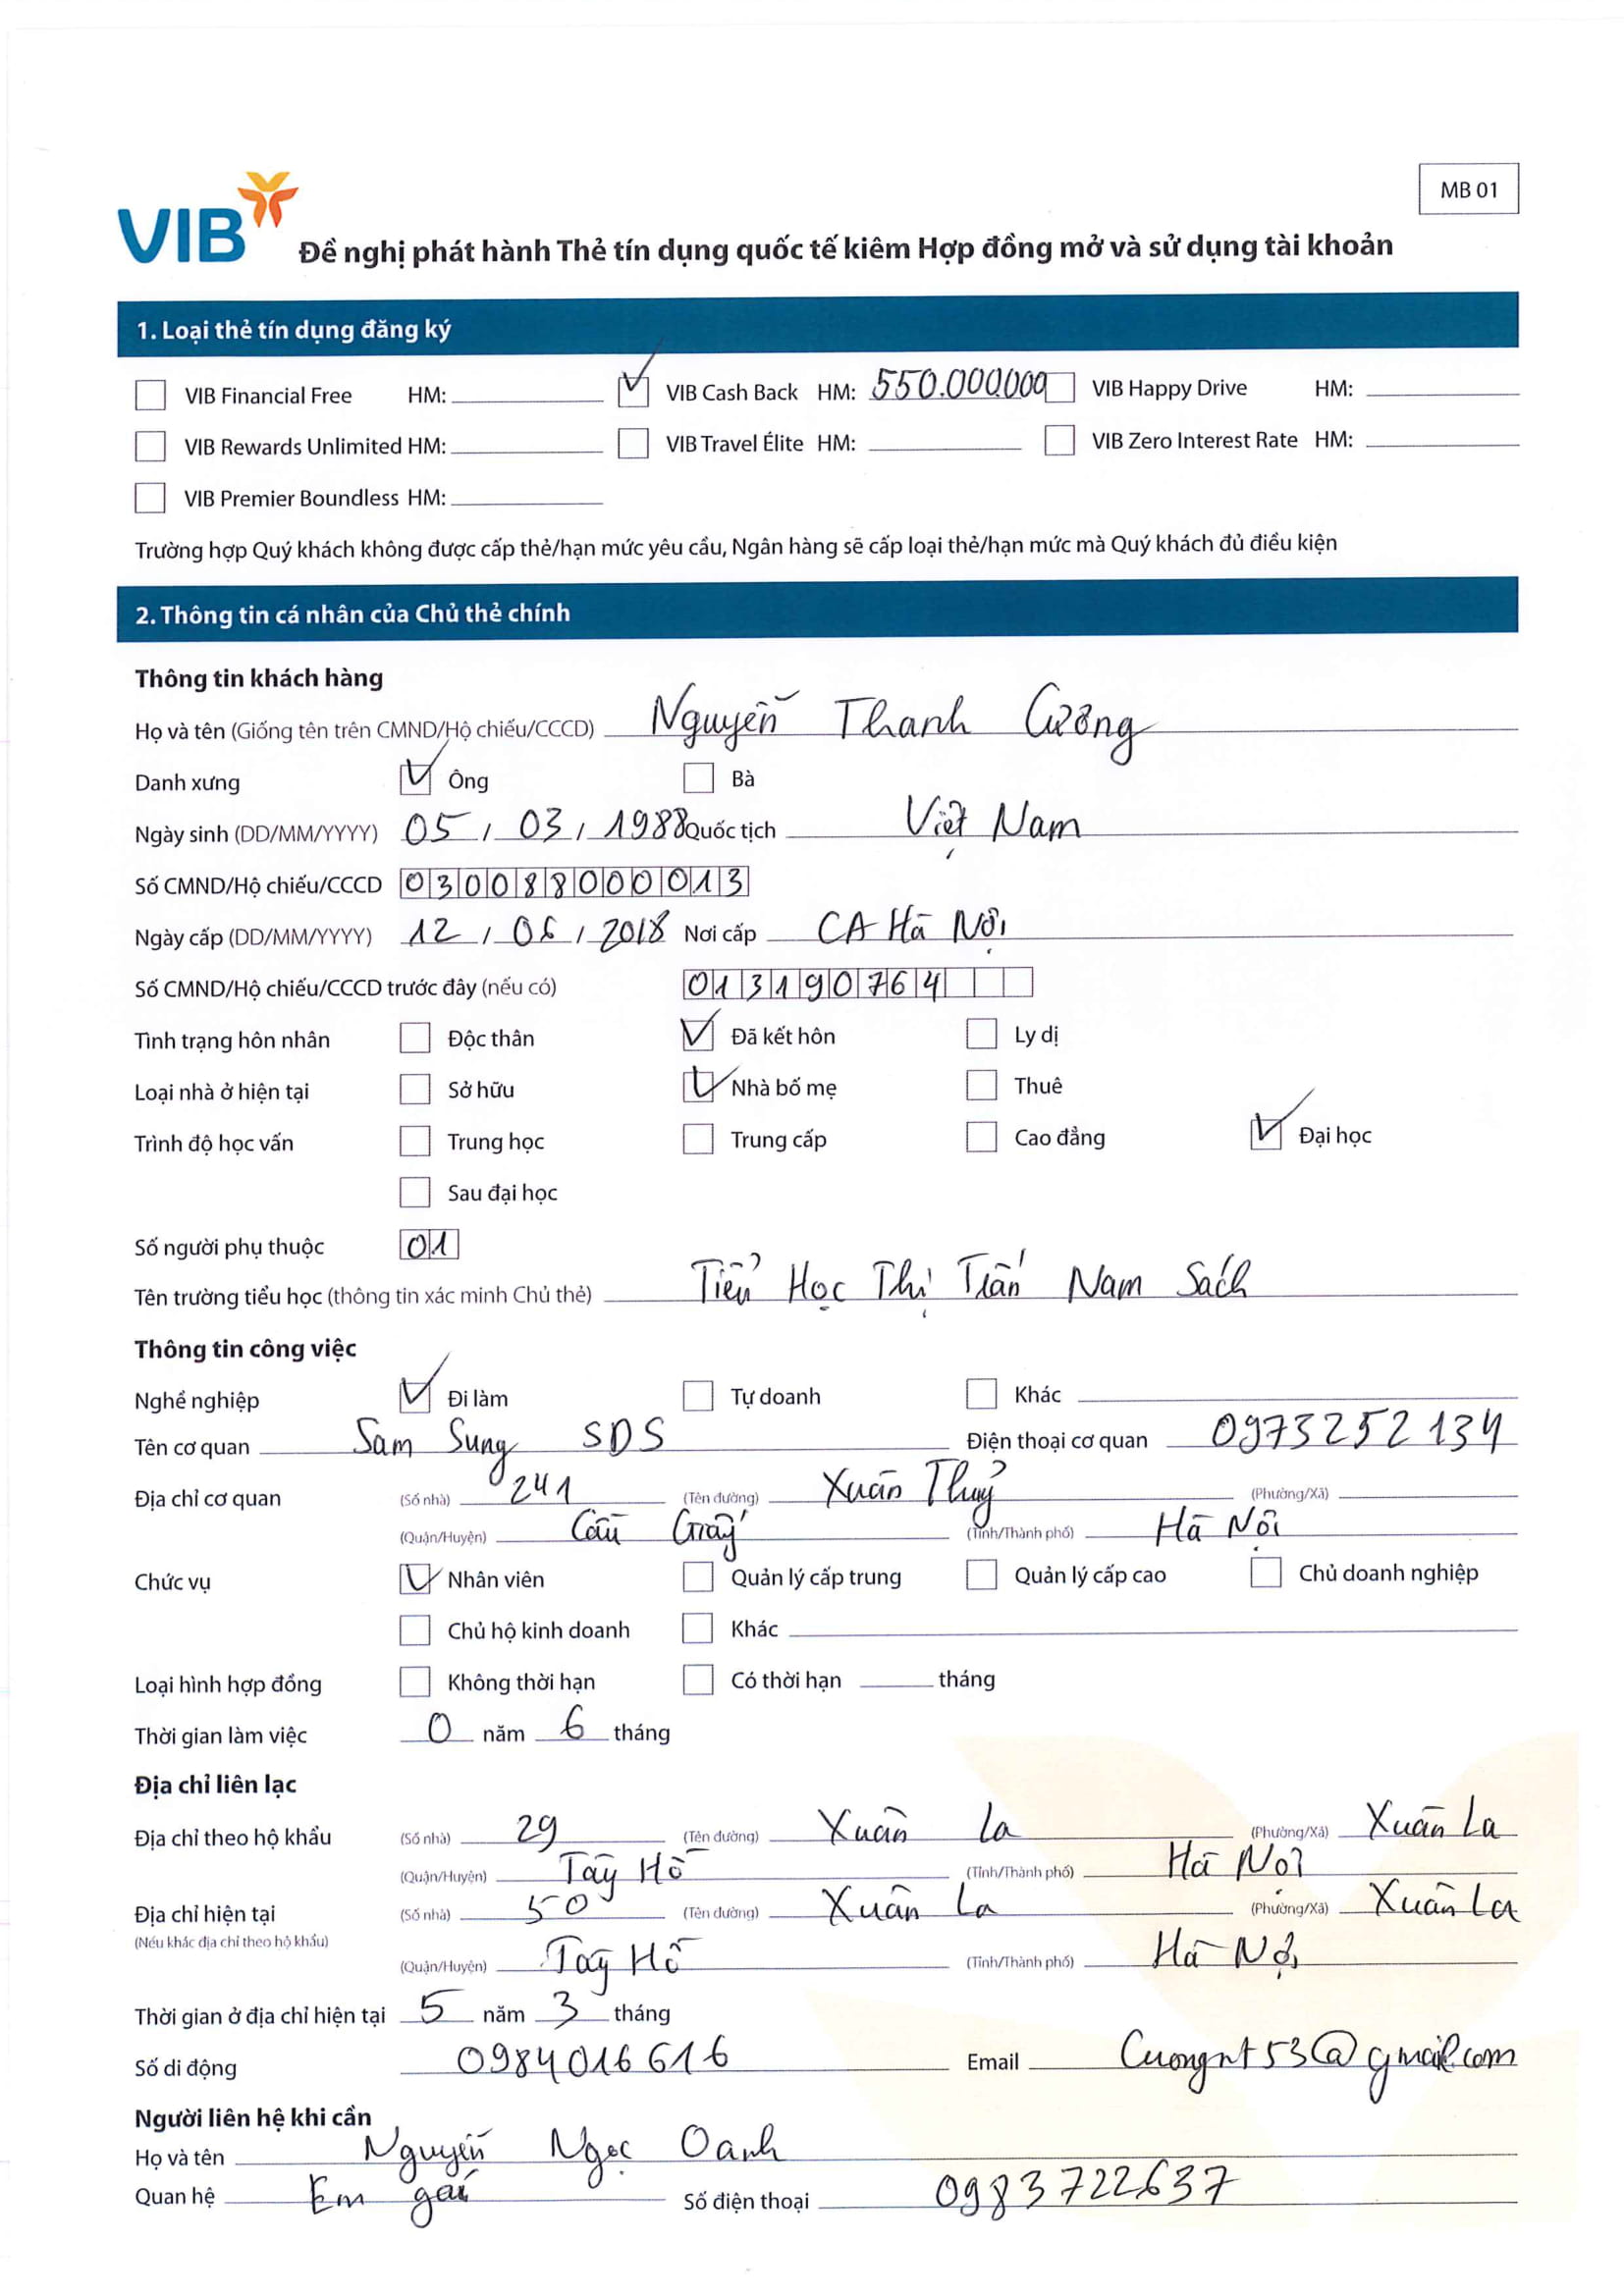 MB 01
VIB
Đề nghị phát hành Thẻ tín dụng quốc tế kiêm Hợp đồng mở và sử dụng tài khoản
1. Loại thẻ tín dụng đăng ký
VIB Financial Free HM: VIB Cash Back HM: 550.000.000 VIB Happy Drive HM:
VIB Rewards Unlimited HM: VIB Travel Élite HM: VIB Zero Interest Rate HM:
VIB Premier Boundless HM:
Trường hợp Quý khách không được cấp thẻ/hạn mức yêu cầu, Ngân hàng sẽ cấp loại thẻ/hạn mức mà Quý khách đủ điều kiện
2. Thông tin cá nhân của Chủ thẻ chính
Thông tin khách hàng
Họ và tên (Giống tên trên CMND/Hộ chiếu/CCCD) Nguyễn Thanh Cương
Danh xưng Ông Bà
Ngày sinh (DD/MM/YYYY) 05 / 03 / 1988 Quốc tịch Việt Nam
Số CMND/Hộ chiếu/CCCD 030088000013
Ngày cấp (DD/MM/YYYY) 12 / 06 / 2018 Nơi cấp CA Hà Nội
Số CMND/Hộ chiếu/CCCD trước đây (nếu có) 013190764
Tình trạng hôn nhân Độc thân Đã kết hôn Ly dị
Loại nhà ở hiện tại Sở hữu Nhà bố mẹ Thuê
Trình độ học vấn Trung học Trung cấp Cao đẳng Đại học
Sau đại học
Số người phụ thuộc 01
Tên trường tiểu học (thông tin xác minh Chủ thẻ) Tiểu Học Thị Trấn Nam Sách
Thông tin công việc
Nghề nghiệp Đi làm Tự doanh Khác
Tên cơ quan Sam Sung SDS Điện thoại cơ quan 0973252134
Địa chỉ cơ quan (Số nhà) 241 (Tên đường) Xuân Thuỷ (Phường/Xã)
(Quận/Huyện) Cầu Giấy (Tỉnh/Thành phố) Hà Nội
Chức vụ Nhân viên Quản lý cấp trung Quản lý cấp cao Chủ doanh nghiệp
Chủ hộ kinh doanh Khác
Loại hình hợp đồng Không thời hạn Có thời hạn tháng
Thời gian làm việc 0 năm 6 tháng
Địa chỉ liên lạc
Địa chỉ theo hộ khẩu (Số nhà) 29 (Tên đường) Xuân La (Phường/Xã) Xuân La
(Quận/Huyện) Tây Hồ (Tỉnh/Thành phố) Hà Nội
Địa chỉ hiện tại (Số nhà) 50 (Tên đường) Xuân La (Phường/Xã) Xuân La
(Nếu khác địa chỉ theo hộ khẩu)
(Quận/Huyện) Tây Hồ (Tỉnh/Thành phố) Hà Nội
Thời gian ở địa chỉ hiện tại 5 năm 3 tháng
Số di động 0984016616 Email Cuongnt53@gmail.com
Người liên hệ khi cần
Họ và tên Nguyễn Ngọc Oanh
Quan hệ Em gái Số điện thoại 0983722637